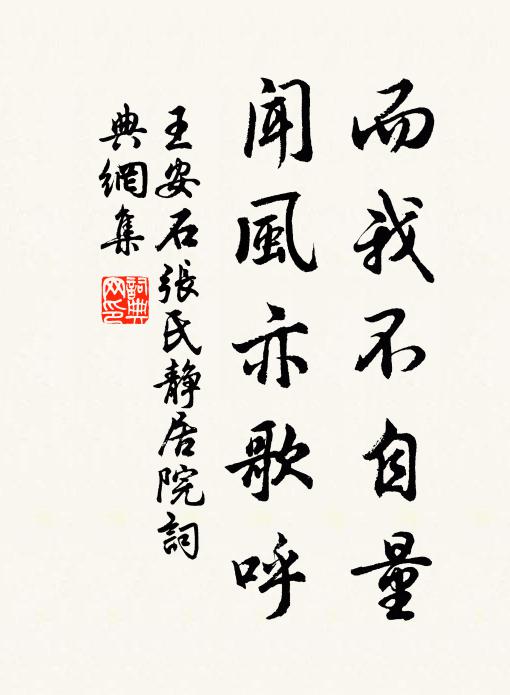 而我不自量
聞風亦歌呼
王安石張氏静居院詞
典網集
詞典網印